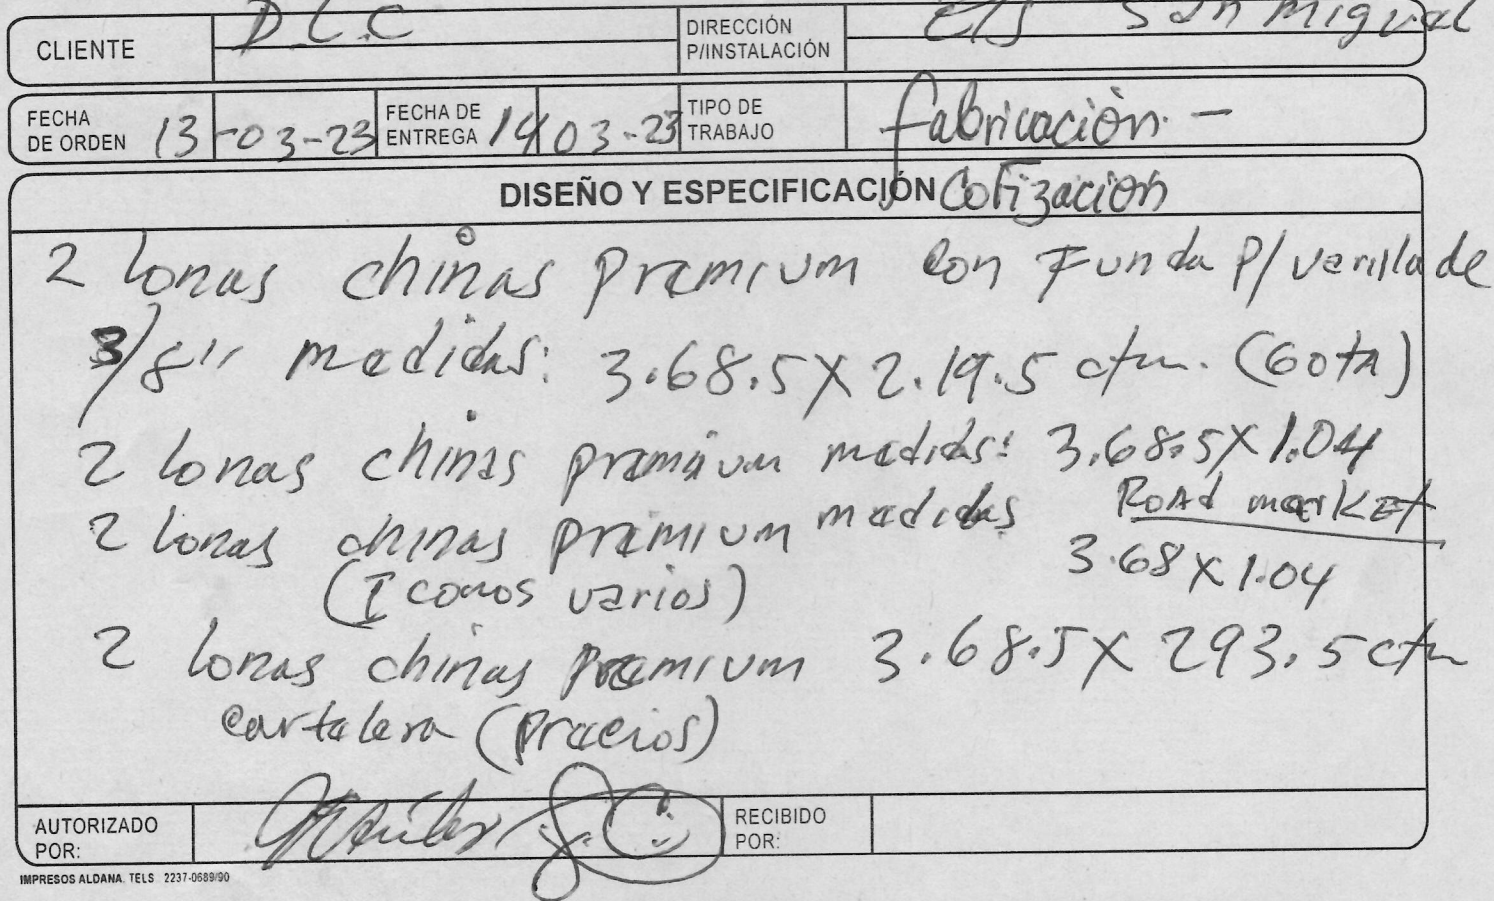 CLIENTE D L.C DIRECCIÓN P/INSTALACIÓN E/S San Miguel
FECHA DE ORDEN 13-03-23 FECHA DE ENTREGA 14/03-23 TIPO DE TRABAJO fabricación. -
DISEÑO Y ESPECIFICACIÓN Cotización
2 lonas chinas premium con Funda P/varilla de
3/8" medidas: 3.68.5 X 2.19.5 ctm. (Gota)
2 lonas chinas premium medidas: 3.68.5 X 1.04
Road market
2 lonas chinas premium medidas
3.68 X 1.04
(Iconos varios)
2 lonas chinas premium 3.68.5 X 293.5 ctm
cartelera (precios)
AUTORIZADO POR: RECIBIDO POR:
IMPRESOS ALDANA. TELS 2237-0689/90